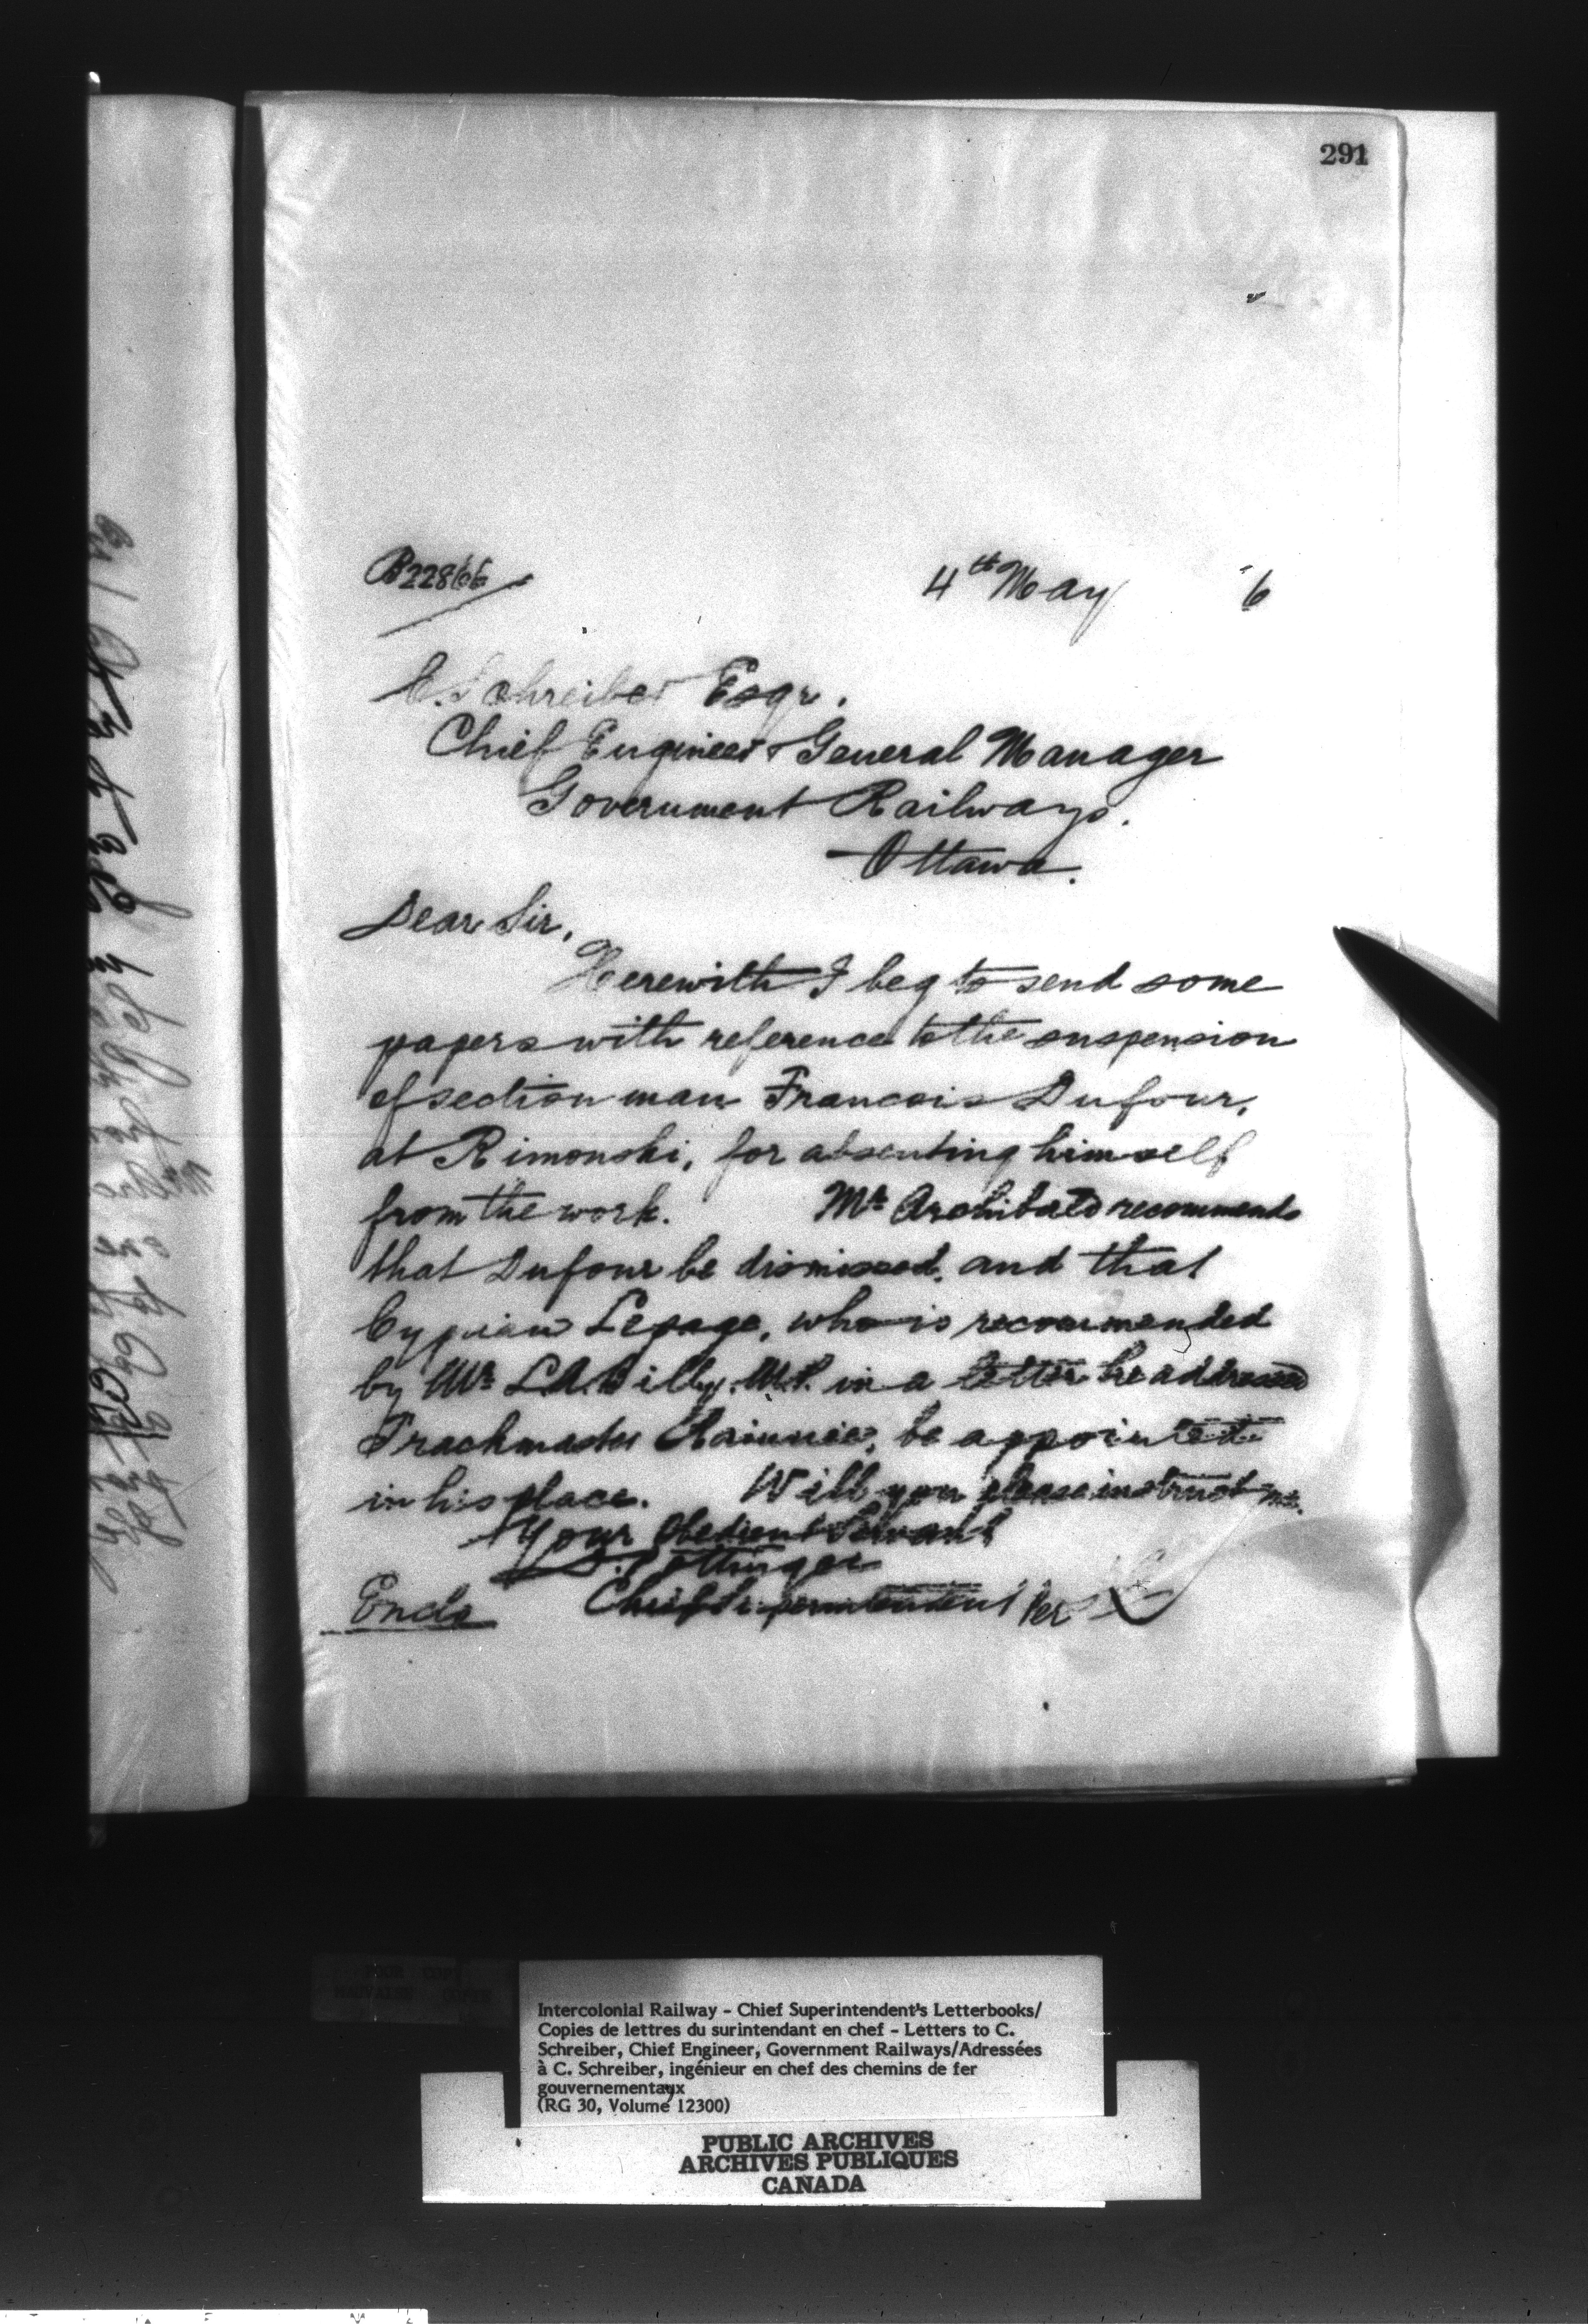 291
B22866
4th May 6
C. Schreiber Esqr.
Chief Engineer & General Manager
Government Railways.
Ottawa.
Dear Sir,
Herewith I beg to send some
papers with reference to the suspension
of section man Francois Dufour,
at Rimouski, for absenting himself
from the work. Mr Archibald recommends
that Dufour be dismissed, and that
Cyprian Lepage, who is recommended
by Mr L.A. Billy, M.P. in a letter he addressed
Trackmaster Rainnie, be appointed
in his place. Will you please instruct me.
Your Obedient Servant
D. Pottinger
Chief Superintendent Per
Encls
Intercolonial Railway - Chief Superintendent's Letterbooks/
Copies de lettres du surintendant en chef - Letters to C.
Schreiber, Chief Engineer, Government Railways/Adressées
à C. Schreiber, ingénieur en chef des chemins de fer
gouvernementaux
(RG 30, Volume 12300)
PUBLIC ARCHIVES
ARCHIVES PUBLIQUES
CANADA